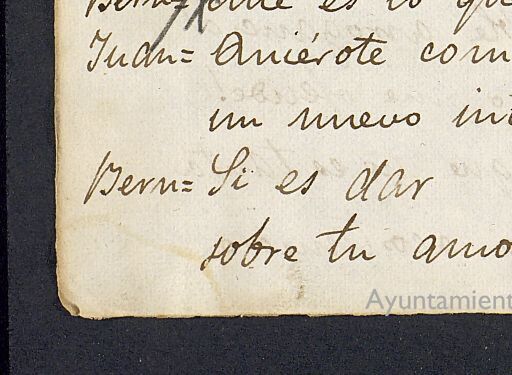 Bern= Que es lo que
Juan= Quiérote com
un nuevo int
Bern= Si es dar
sobre tu amo
Ayuntamient